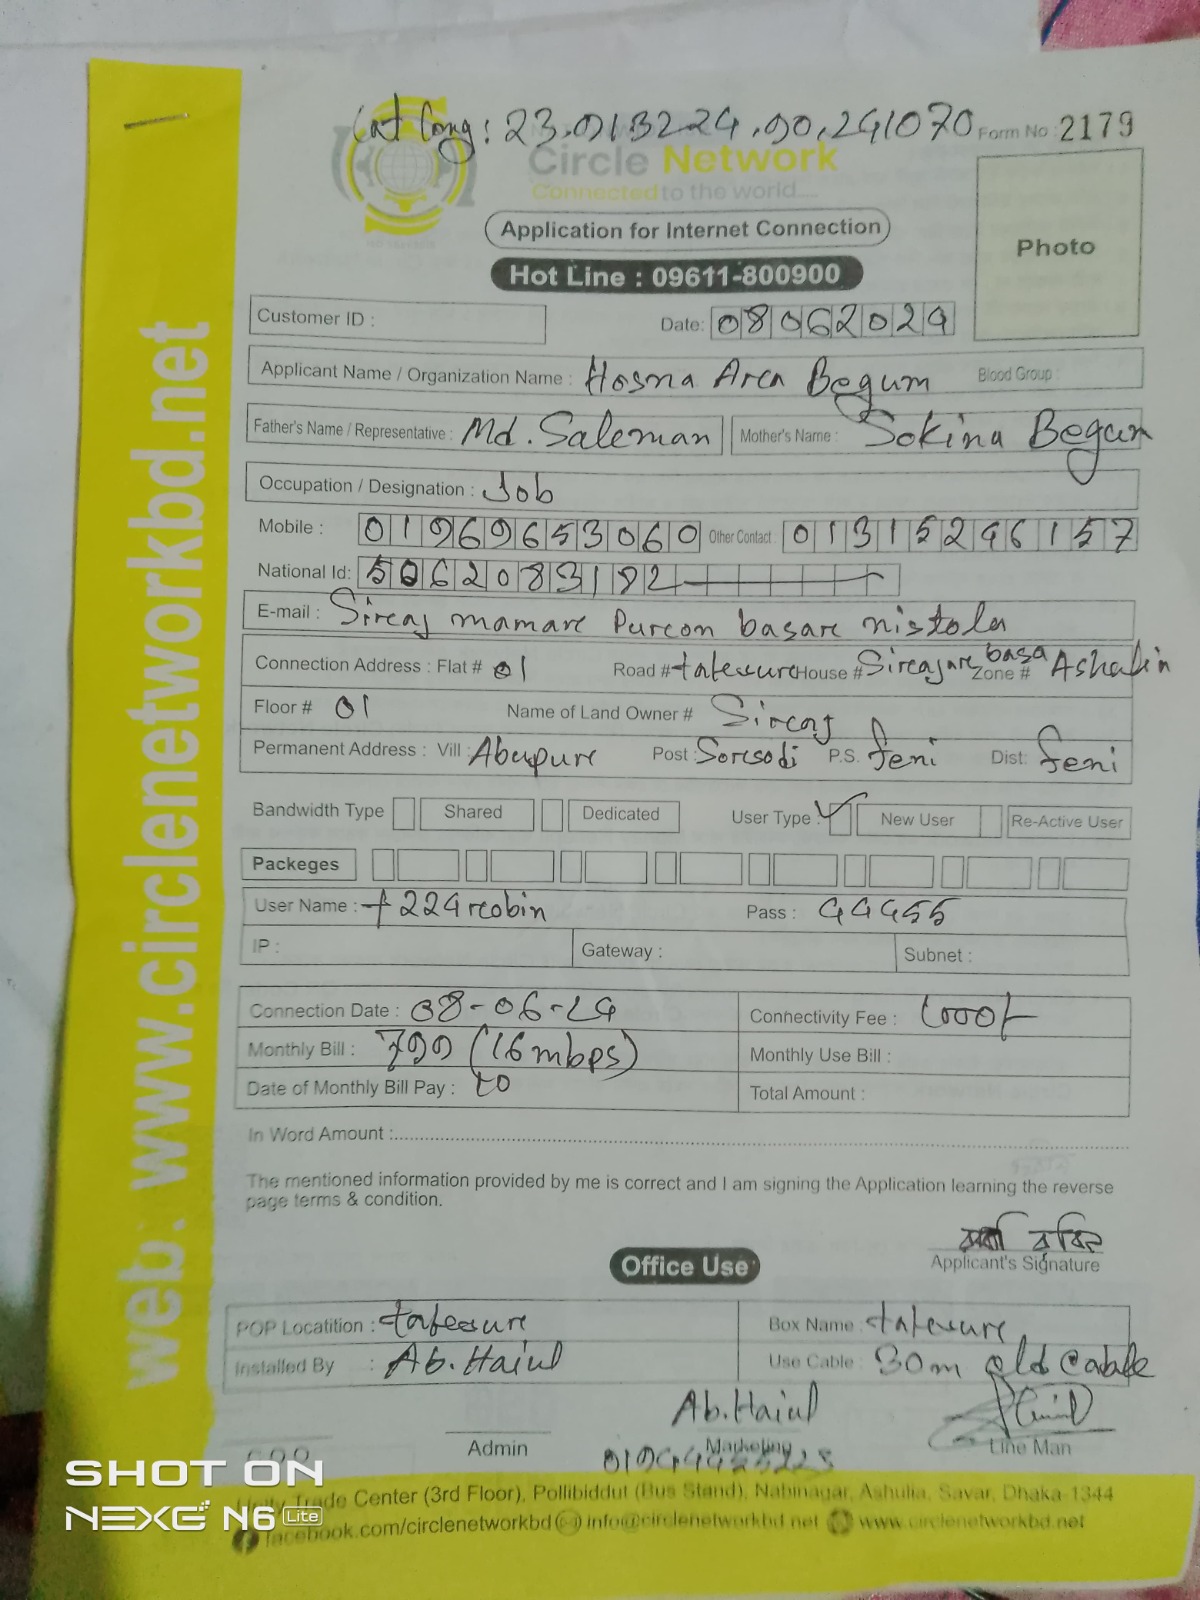 Lat Long: 23.913224, 90.241070 Form No : 2179
Circle Network
Connected to the world.....
Application for Internet Connection
Photo
Hot Line : 09611-800900
Customer ID : Date: 08062024
Applicant Name / Organization Name : Hosna Area Begum Blood Group :
Father's Name / Representative : Md. Saleman Mother's Name : Sokina Begum
Occupation / Designation : Job
Mobile : 01969653060 Other Contact : 01315246157
National Id: 5062083182
E-mail : Siraj mamar Purcon basare nistola
Connection Address : Flat # 01 Road # House # basa Zone #
Floor # 01 Name of Land Owner # Siraj
Permanent Address : Vill : Post : Sorisodi P.S. feni Dist: feni
Bandwidth Type Shared Dedicated User Type : New User Re-Active User
Packeges
User Name : 224robin Pass : 44455
IP : Gateway : Subnet :
Connection Date : 08-06-24 Connectivity Fee : 1000/-
Monthly Bill : 799 (16 mbps) Monthly Use Bill :
Date of Monthly Bill Pay : 10 Total Amount :
In Word Amount :
The mentioned information provided by me is correct and I am signing the Application learning the reverse
page terms & condition.
রবিন
Applicant's Signature
Office Use
POP Locatition : Box Name :
Installed By : Ab. Haiul Use Cable : 30m old Cable
Ab. Haiul
Admin Marketing Line Man
Unity Trade Center (3rd Floor), Pollibiddut (Bus Stand), Nabinagar, Ashulia, Savar, Dhaka-1344
facebook.com/circlenetworkbd info@circlenetworkbd.net www.circlenetworkbd.net
web: www.circlenetworkbd.net
SHOT ON
NEXG N6 Lite